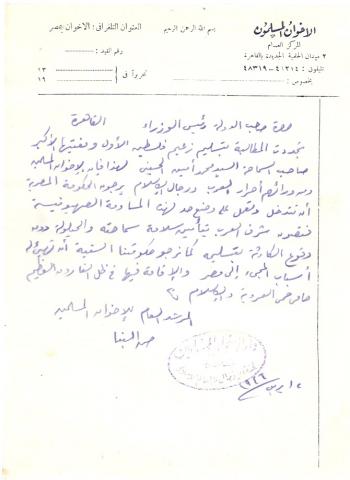 الاخوان المسلمون
للركز العـام
٢ ميدان الحلمية الجديدة بالقاهرة
تليفون : ٤١٢١٤ — ٤٨٣١٩
بخصوص :
بسم الله الرحمن الرحيم
العنوان التلغرافى : الاخوان بمصر
رقم القيد :
تحريراً فى
١٣
١٩
حضرة صاحب الدولة رئيس الوزراء القاهرة
تجددت المطالبة بتسليم زعيم فلسطين الأول ومفتيها الأكبر
صاحب السماحة السيد محمد أمين الحسينى لهذا فإن الإخوان المسلمين
ومن ورائهم أحرار العرب ورجال الإسلام يرجون الحكومة المصرية
أن تتدخل وتعمل على وضع حد لهذه المساومة الصهيونية
فتصون شرف العرب بتأمين سلامة سماحته والحيلولة دون
وقوع الكارثة بتسليمه كما نرجو حكومتنا السنية أن تهيئ له
أسباب المجيء إلى مصر والإقامة فيها فى ظل الفاروق العظيم
حامى حمى العروبة والإسلام
المرشد العام للإخوان المسلمين
حسن البنا